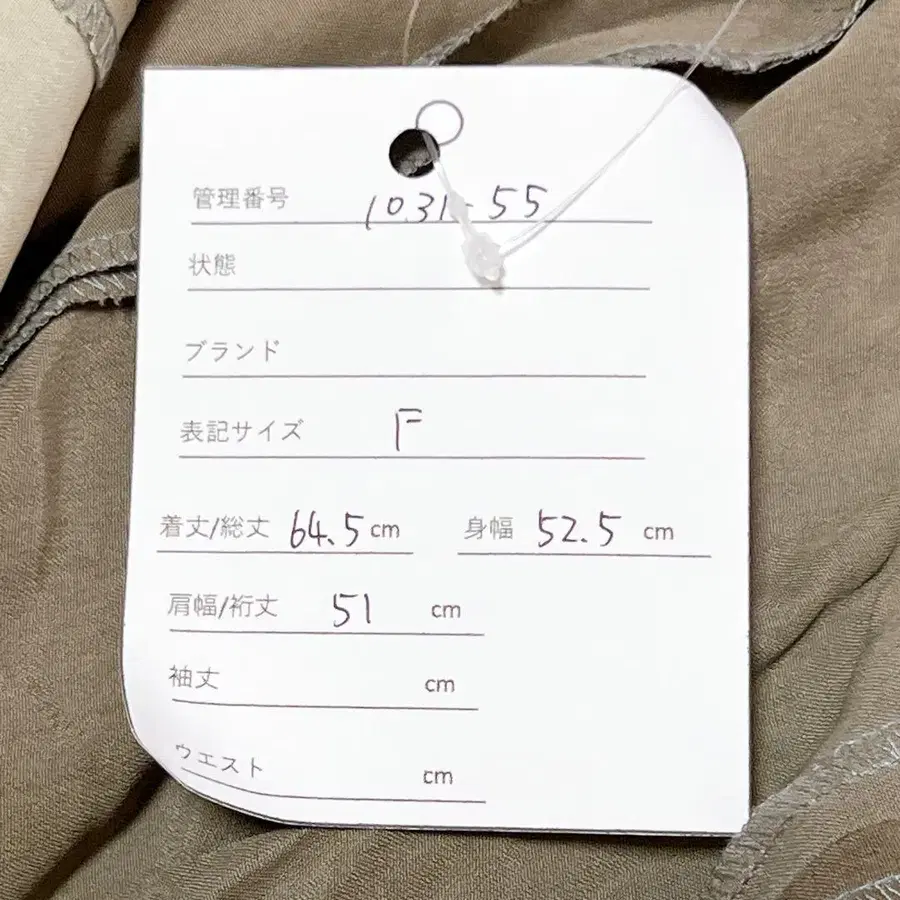 管理番号 1031-55
状態
ブランド
表記サイズ F
着丈/総丈 64.5 cm 身幅 52.5 cm
肩幅/裄丈 51 cm
袖丈 cm
ウエスト cm